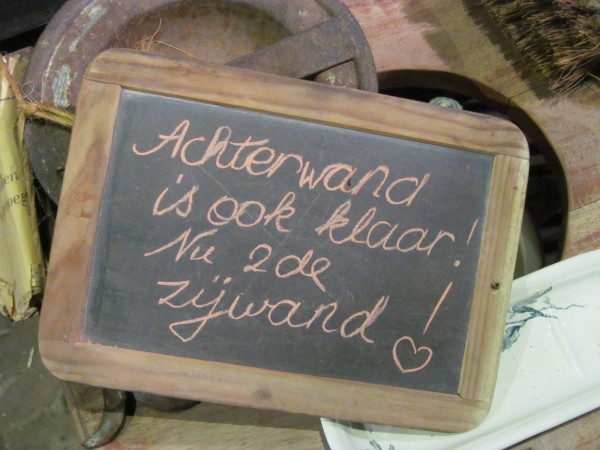 Achterwand
is ook klaar!
Nu 2de
zijwand!